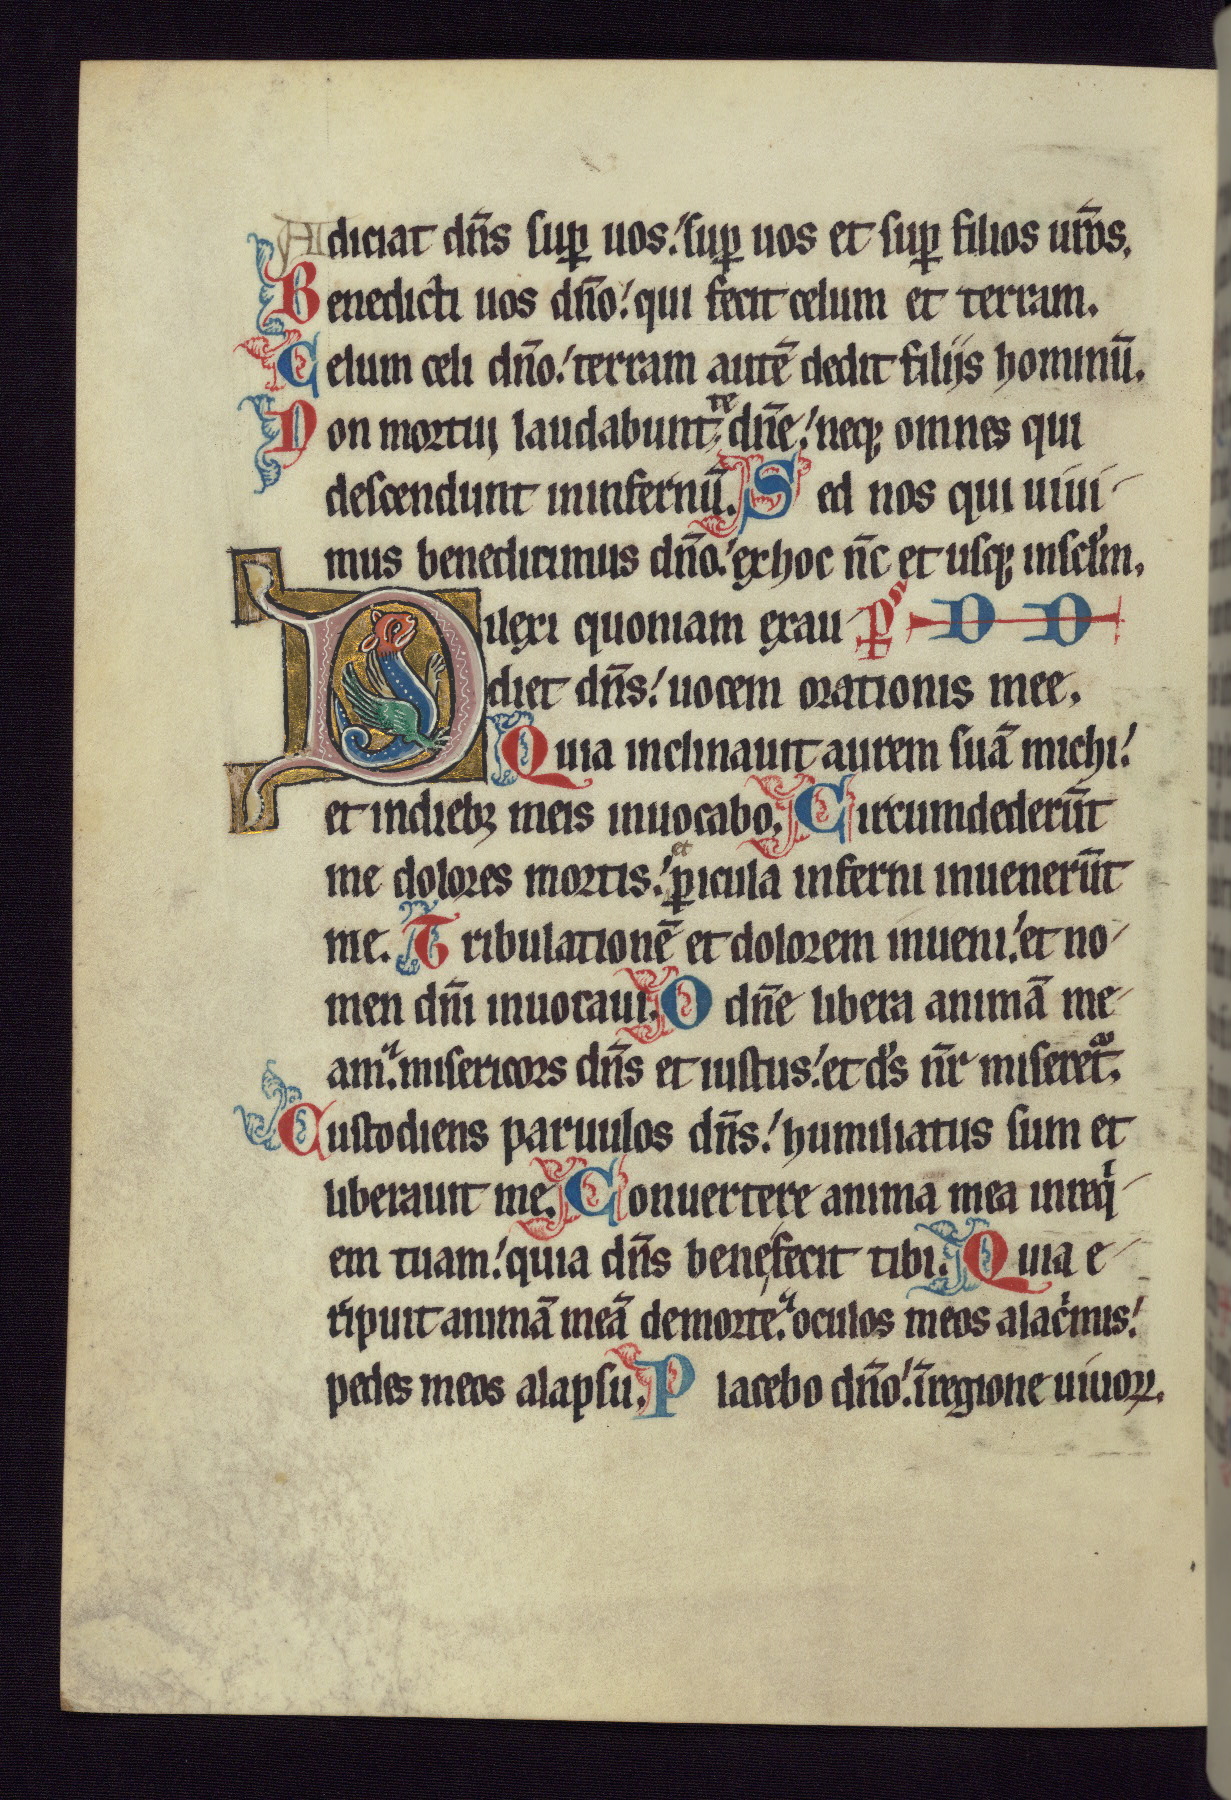 Adiciat dn̄s sup̱ uos: sup̱ uos et sup̱ filios ur̄os.
Benedicti uos dn̄o: qui fecit celum et terram.
Celum celi dn̄o: terram autē dedit filijs hominū.
Non mortui laudabunt te dn̄e: neq; omnes qui
descendunt ininfernū. Sed nos qui uiui-
mus benedicimus dn̄o: exhoc nc̄ et usq; inscl̄m.
Dilexi quoniam exau
diet dn̄s: uocem orationis mee.
Quia inclinauit aurem suā michi:
et indieb; meis inuocabo. Circumdederūt
me dolores mortis: et p̱icula inferni inuenerūt
me. Tribulationē et dolorem inueni: et no-
men dn̄i inuocaui. O dn̄e libera animā me-
am: misericors dn̄s et iustus: et ds̄ nr̄ miseret͛.
Custodiens paruulos dn̄s: humiliatus sum et
liberauit me. Conuertere anima mea inreqⁱ-
em tuam: quia dn̄s benefecit tibi. Quia e-
ripuit animā meā demorte: oculos meos alacⁱmis:
pedes meos alapsu. Placebo dn̄o: īregione uiuoꝝ.